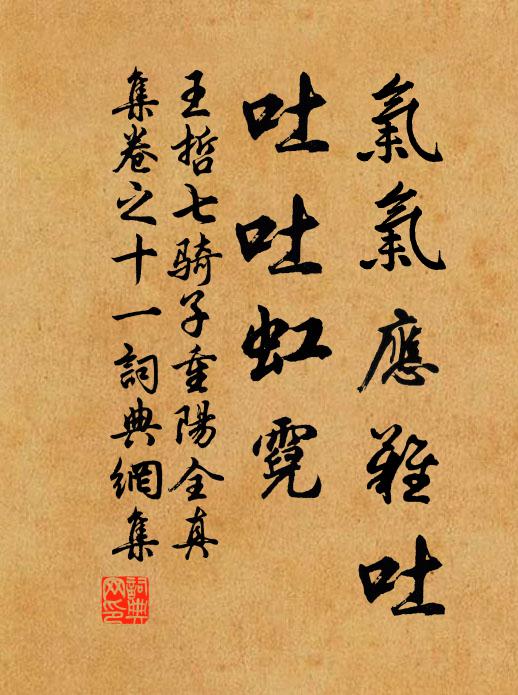 氣氣應難吐
吐吐虹霓
王哲七骑子重陽全真
集卷之十一詞典網集
詞典
网印